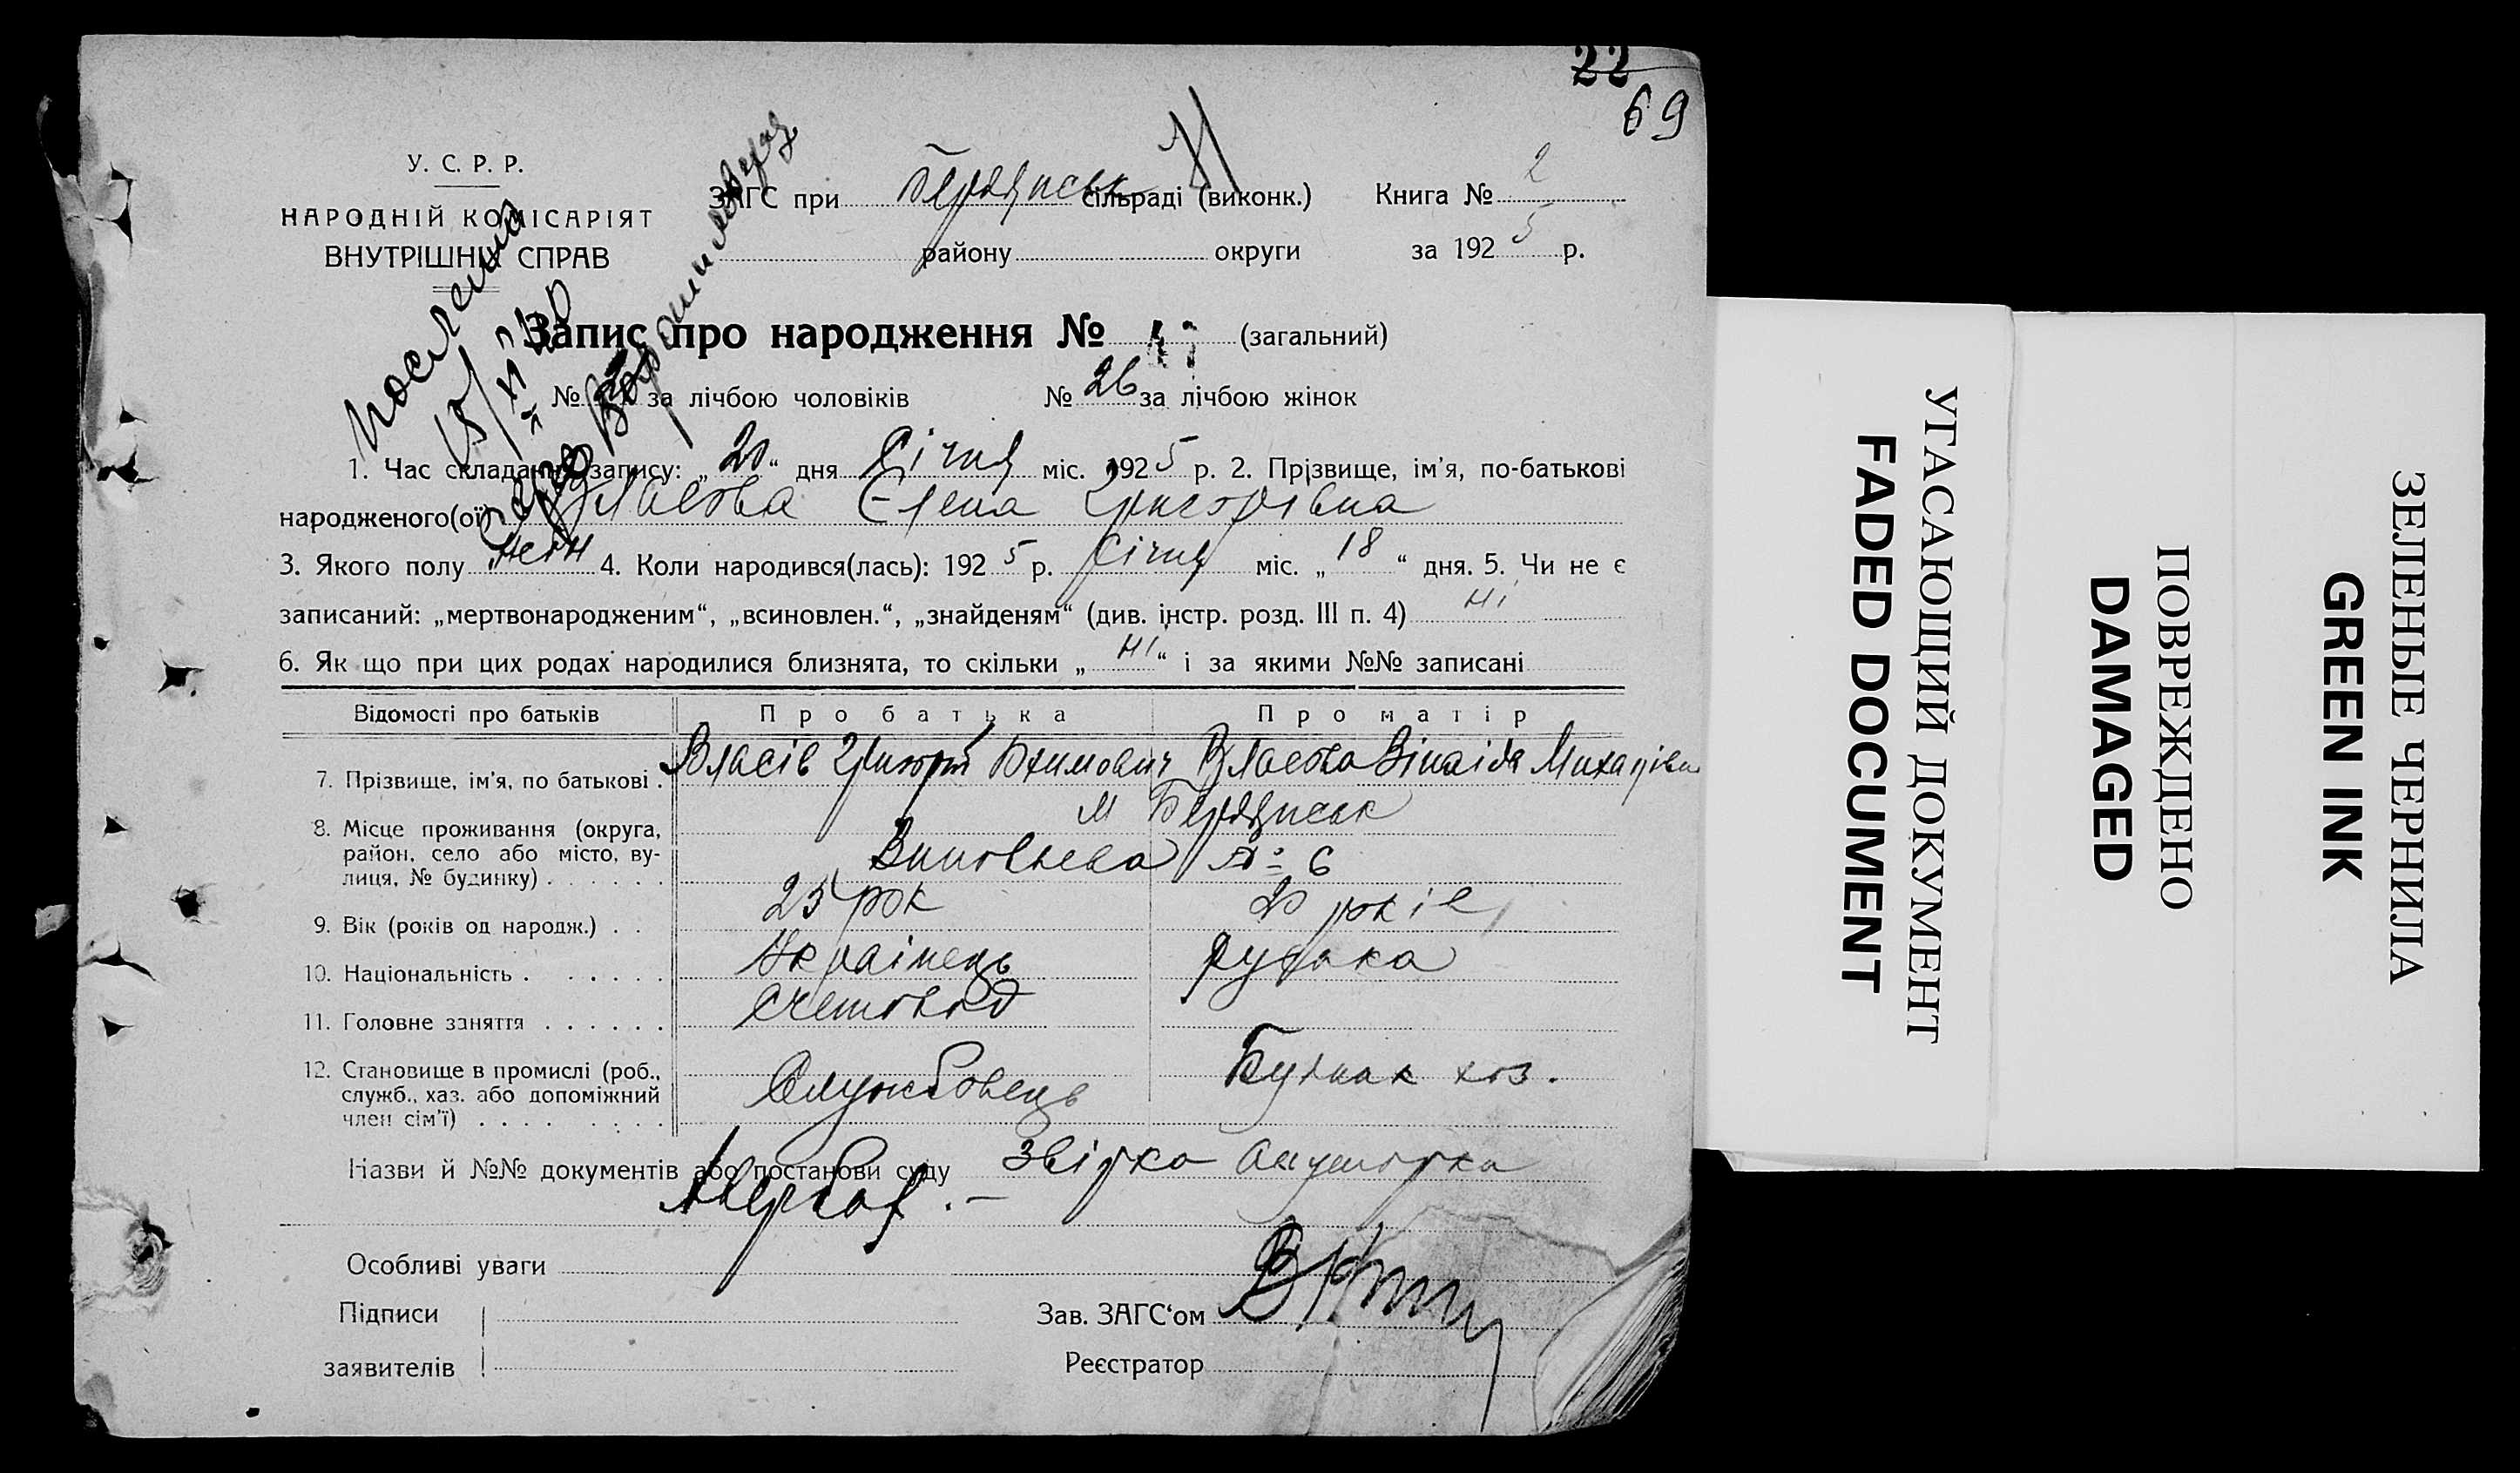 22
69
У. С. Р. Р.
НАРОДНІЙ КОМІСАРІЯТ
ВНУТРІШНІХ СПРАВ
ЗАГС при Бердянськ сільраді (виконк.) Книга № 2
району округи за 1925 р.
Запис про народження № 47 (загальний)
№ за лічбою чоловіків № 26 за лічбою жінок
1. Час складання запису: „20“ дня Січня міс. 1925 р. 2. Прізвище, ім’я, по-батькові
народженого(ої) Власова Єлена Григорівна
3. Якого полу жін 4. Коли народився(лась): 1925 р. Січня міс. „18“ дня. 5. Чи не є
записаний: „мертвонародженим“, „всиновлен.“, „знайденям“ (див. інстр. розд. III п. 4) Ні
6. Як що при цих родах народилися близнята, то скільки „Ні“ і за якими №№ записані
Відомості про батьків Про батька Про матір
7. Прізвище, ім’я, по батькові . Власів Григорій Власова Зінаіда
8. Місце проживання (округа, район, село або місто, вулиця, № будинку) . . . . . . м Бердянськ
№ 6
9. Вік (років од народж.) . . 25 рок 20 років
10. Національність . . . . . . Українець руська
11. Головне заняття . . . . . . счетовод
12. Становище в промислі (роб., служб., хаз. або допоміжний член сім’ї) . . . . . . . . Службовець хоз.
Назви й №№ документів або постанови суду Звірка акушорки
Особливі уваги
Підписи
заявителів
Зав. ЗАГС‘ом
Реєстратор
УГАСАЮЩИЙ ДОКУМЕНТ
FADED DOCUMENT
ПОВРЕЖДЕНО
DAMAGED
ЗЕЛЕНЫЕ ЧЕРНИЛА
GREEN INK